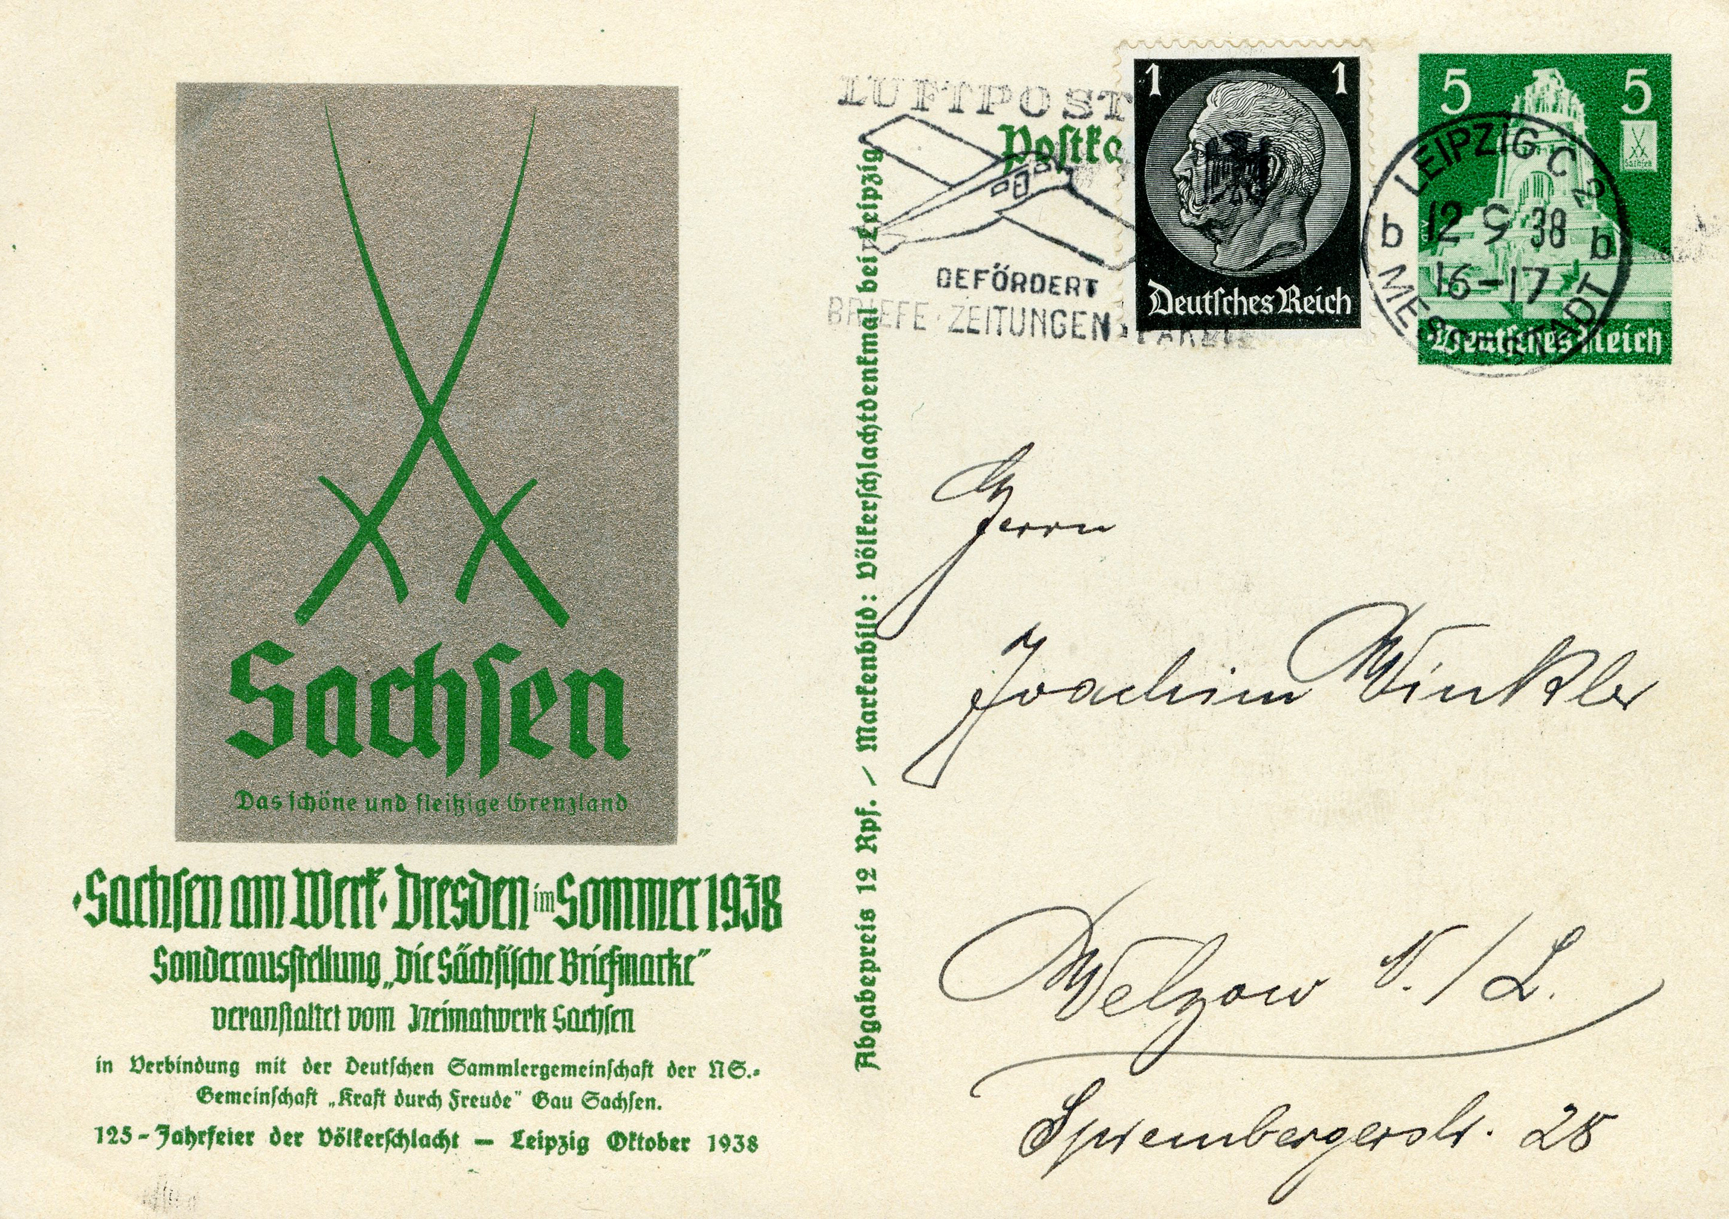 Sachsen
Das schöne und fleißige Grenzland
·Sachsen am Werk· Dresden im Sommer 1938
Sonderausstellung „Die Sächsische Briefmarke“
veranstaltet vom Heimatwerk Sachsen
in Verbindung mit der Deutschen Sammlergemeinschaft der NS.-
Gemeinschaft „Kraft durch Freude“ Gau Sachsen.
125-Jahrfeier der Völkerschlacht — Leipzig Oktober 1938
Abgabepreis 12 Rpf. / Markenbild: Völkerschlachtdenkmal bei Leipzig
LUFTPOST
Postka
BEFÖRDERT
BRIEFE·ZEITUNGEN·PAKETE
1 1
Deutsches Reich
5 5
Sachsen
Deutsches Reich
LEIPZIG C 2
b 12 9 38 b
16-17
MESSESTADT
Herrn
Joachim Winkler
Welzow N./L.
Sprembergerstr. 28